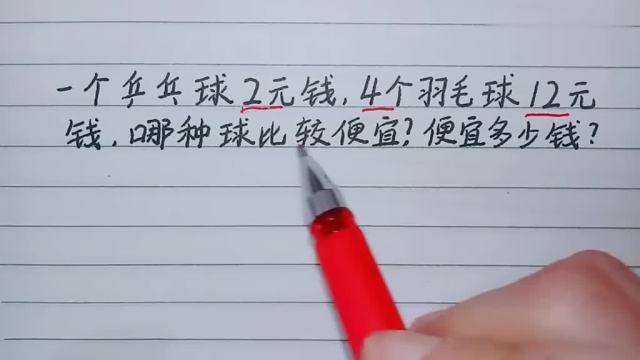 一个乒乓球2元钱,4个羽毛球12元
钱,哪种球比较便宜?便宜多少钱?